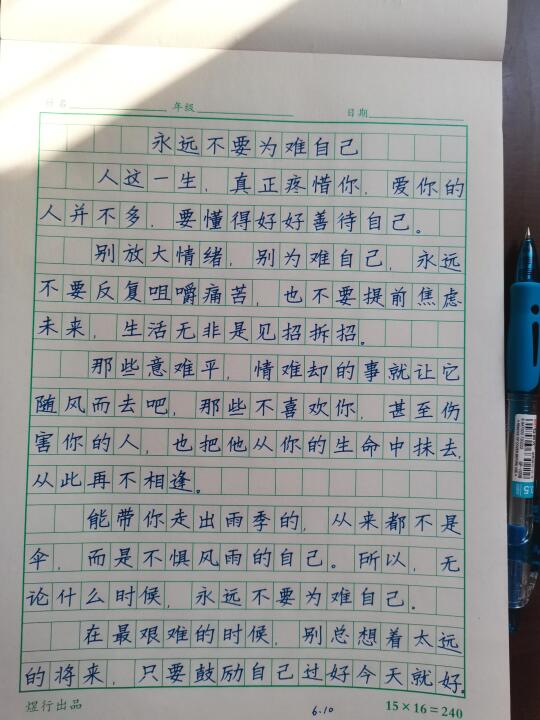 姓名 年级 日期
永远不要为难自己
人这一生，真正疼惜你，爱你的
人并不多，要懂得好好善待自己。
别放大情绪，别为难自己，永远
不要反复咀嚼痛苦，也不要提前焦虑
未来，生活无非是见招拆招。
那些意难平，情难却的事就让它
随风而去吧，那些不喜欢你，甚至伤
害你的人，也把他从你的生命中抹去，
从此再不相逢。
能带你走出雨季的，从来都不是
伞，而是不惧风雨的自己。所以，无
论什么时候，永远不要为难自己。
在最艰难的时候，别总想着太远
的将来，只要鼓励自己过好今天就好。
煜行出品 6.10 15×16=240